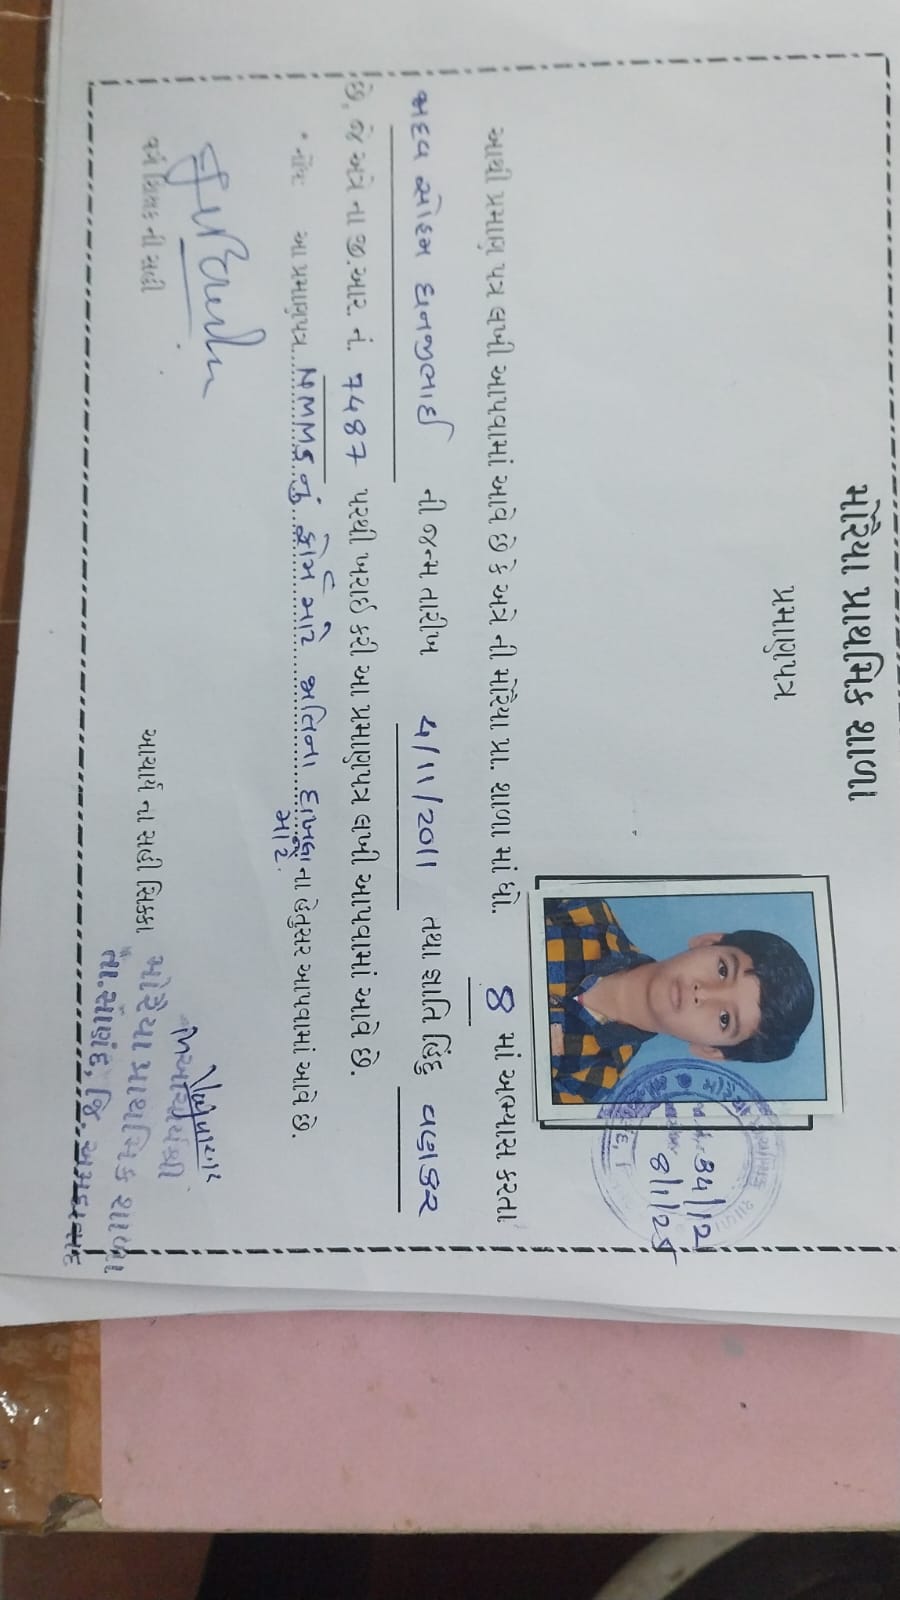 મોરૈયા પ્રાથમિક શાળા
પ્રમાણપત્ર
આથી પ્રમાણ પત્ર લખી આપવામાં આવે છે કે અત્રે ની મોરૈયા પ્રા. શાળા માં ધો. 8 માં અભ્યાસ કરતા
મહદેવ ઓમ ધનજીભાઈ ની જન્મ તારીખ 4/11/2011 તથા જ્ઞાતિ હિંદુ વણકર
છે, જે અત્રે ના જી.આર. નં. 7487 પરથી ખરાઈ કરી આ પ્રમાણપત્ર લખી આપવામાં આવે છે.
* નોંધ: આ પ્રમાણપત્ર NMMS નું ફોર્મ માટે જાતિના દાખલા માટે ના હેતુસર આપવામાં આવે છે.
વર્ગ શિક્ષક ની સહી
આચાર્ય ના સહી સિક્કા
આચાર્યશ્રી
મોરૈયા પ્રાથમિક શાળા
તા.સાણંદ, જિ. અમદાવાદ
8/1/25